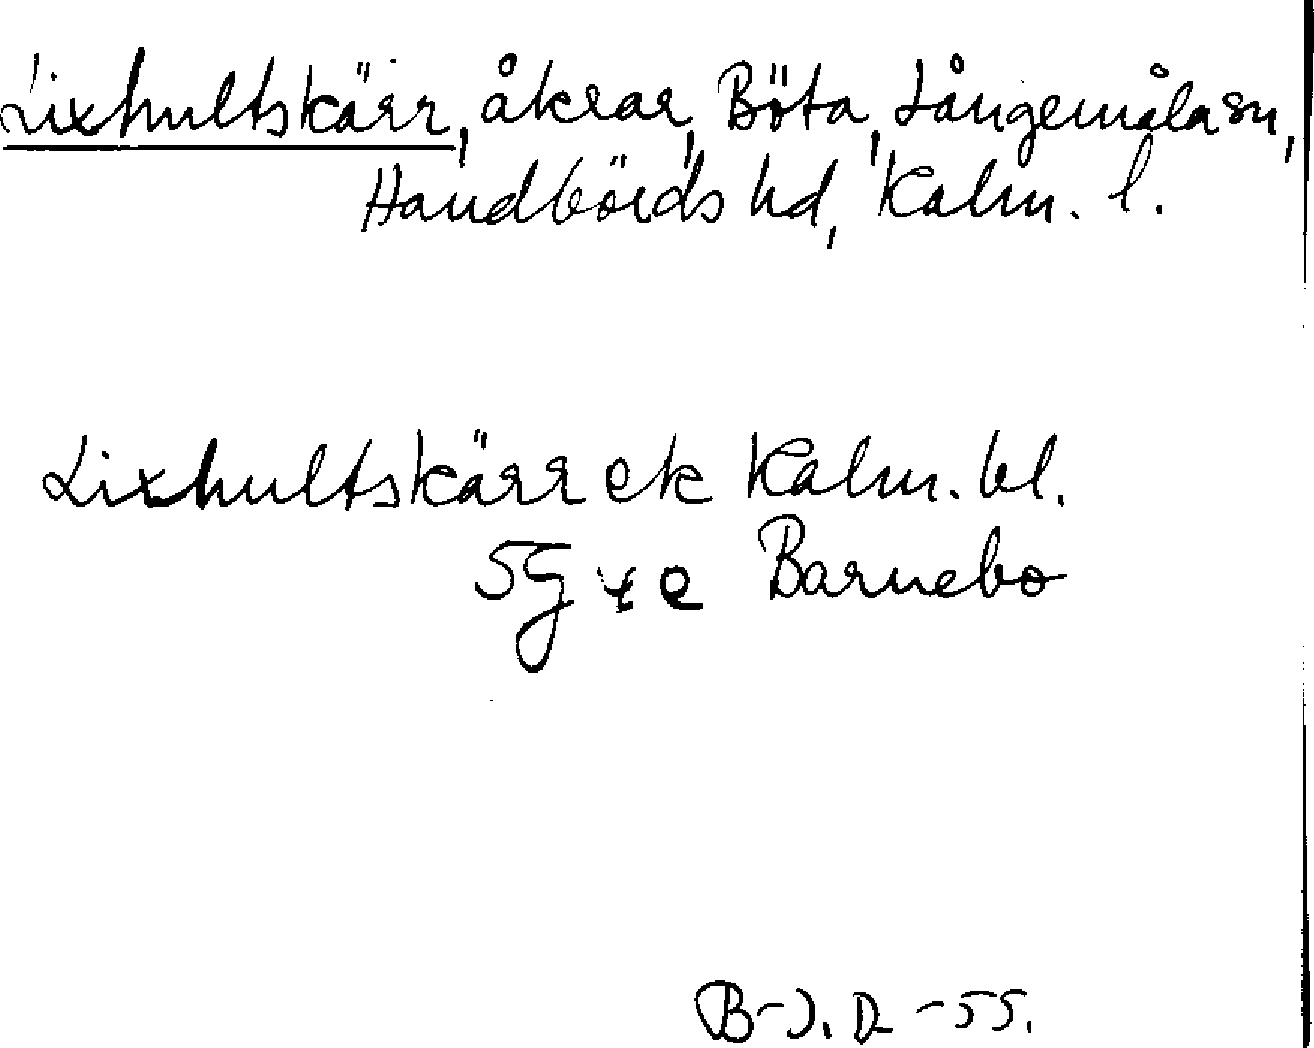 Lixhultskärr, åkrar, Böta, Långemåla sn,
Handbörds hd, Kalm. l.
Lixhultskärr ek Kalm. bl.
5G y e Barnebo
B-J. D. -55.